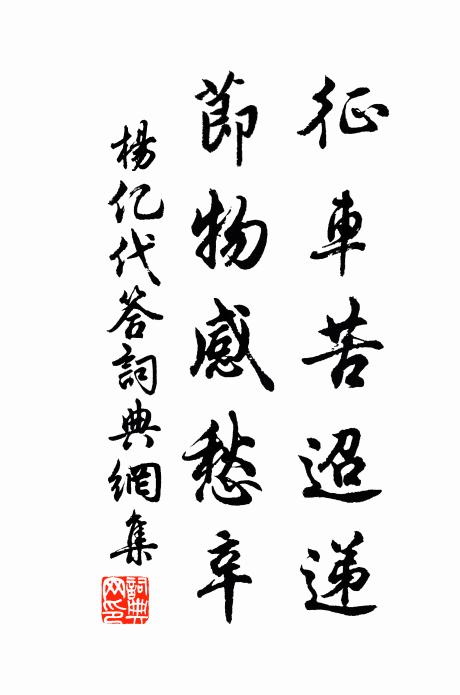 征車苦迢递
節物感愁辛
楊亿代答詞典網集
詞典网印